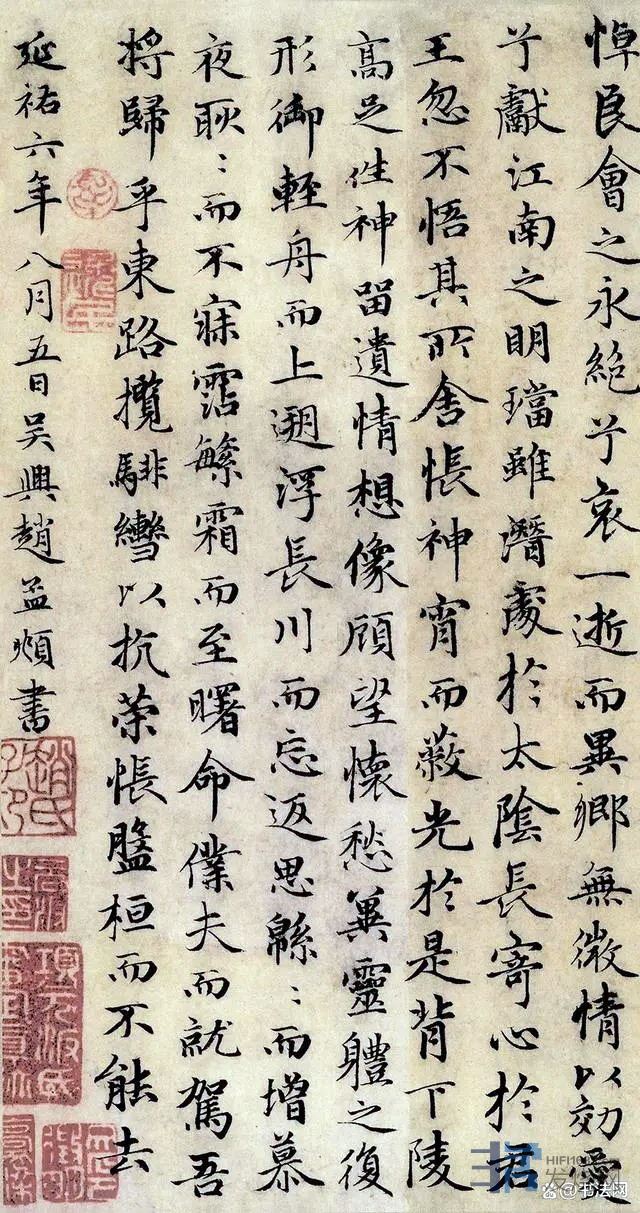 悼良會之永絕兮哀一逝而異鄉無微情以効愛
兮獻江南之明璫雖潛處於太陰長寄心於君
王忽不悟其所舍悵神宵而蔽光於是背下陵
高足往神留遺情想像顧望懷愁冀靈軆之復
形御輕舟而上遡浮長川而忘返思緜〻而增慕
夜耿〻而不寐霑繁霜而至曙命僕夫而就駕吾
將歸乎東路攬騑轡以抗策悵盤桓而不能去
延祐六年八月五日吴興趙孟頫書
趙氏子昂
书法网